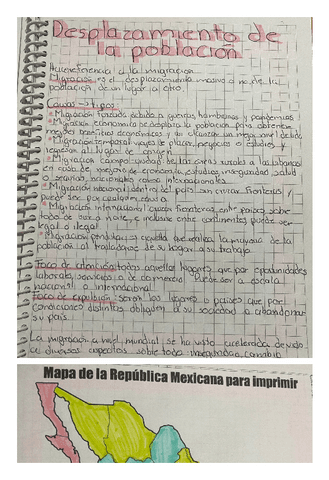 Desplazamiento de
la población
Hace referencia a la migración
Migración → es el desplazamiento masivo o no de la
población de un lugar a otro.
Causas → tipos
Migración forzada debido a guerras, hambrunas y pandemias
Migración economica se desplaza la población para obtener
mayores beneficios económicos y así alcanzar un mejor nivel de vida
Migración temporal viajes de placer, negocios o estudios y
regresan al lugar de origen
Migración campo-ciudad de las áreas rurales a las urbanas
en casa de mejoría de economía, estudios, inseguridad, salud
o servicios nacionales como internacionales
Migración nacional dentro del país sin cruzar fronteras y
puede ser por cualquier
Migración internacional cruzar fronteras entre países sobre
todo de sur a norte, e inclusive entre continentes puede ser
legal o ilegal
Migración pendular → aquella que realiza la mayoría de la
población al trasladarse de su hogar a su trabajo
Foco de atención todos aquellos lugares que por oportunidades
laborales, servicios o de comercio. Puede ser a escala
nacional o internacional.
Foco de expulsión: serán los lugares o países que por
condiciones distintas obliguen a su sociedad a abandonar
su país.
La migración a nivel mundial se ha visto acelerada debido
a diversos aspectos sobre todo inseguridad, cambio
Mapa de la República Mexicana para imprimir